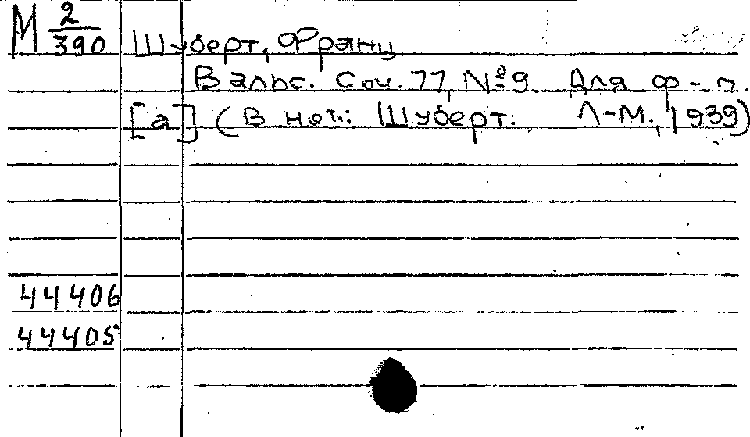 М 2/390
Шуберт, Франц
Вальс. Соч. 77, №9. Для ф-п.
[а] (В нот.: Шуберт. Л-М., 1939)
44406
44405